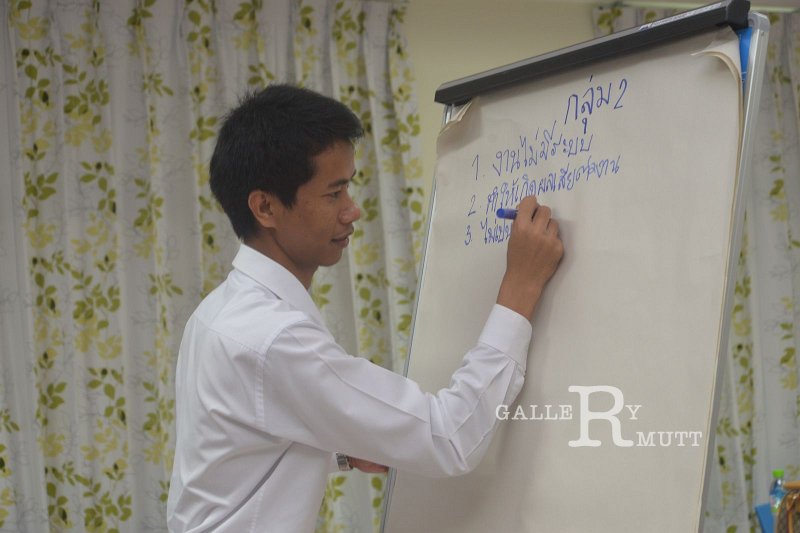 กลุ่ม 2
1. งานไม่มีระบบ
2 ทำให้เกิดผลเสียต่องาน
3. ไม่เป็น
GALLERY
RMUTT